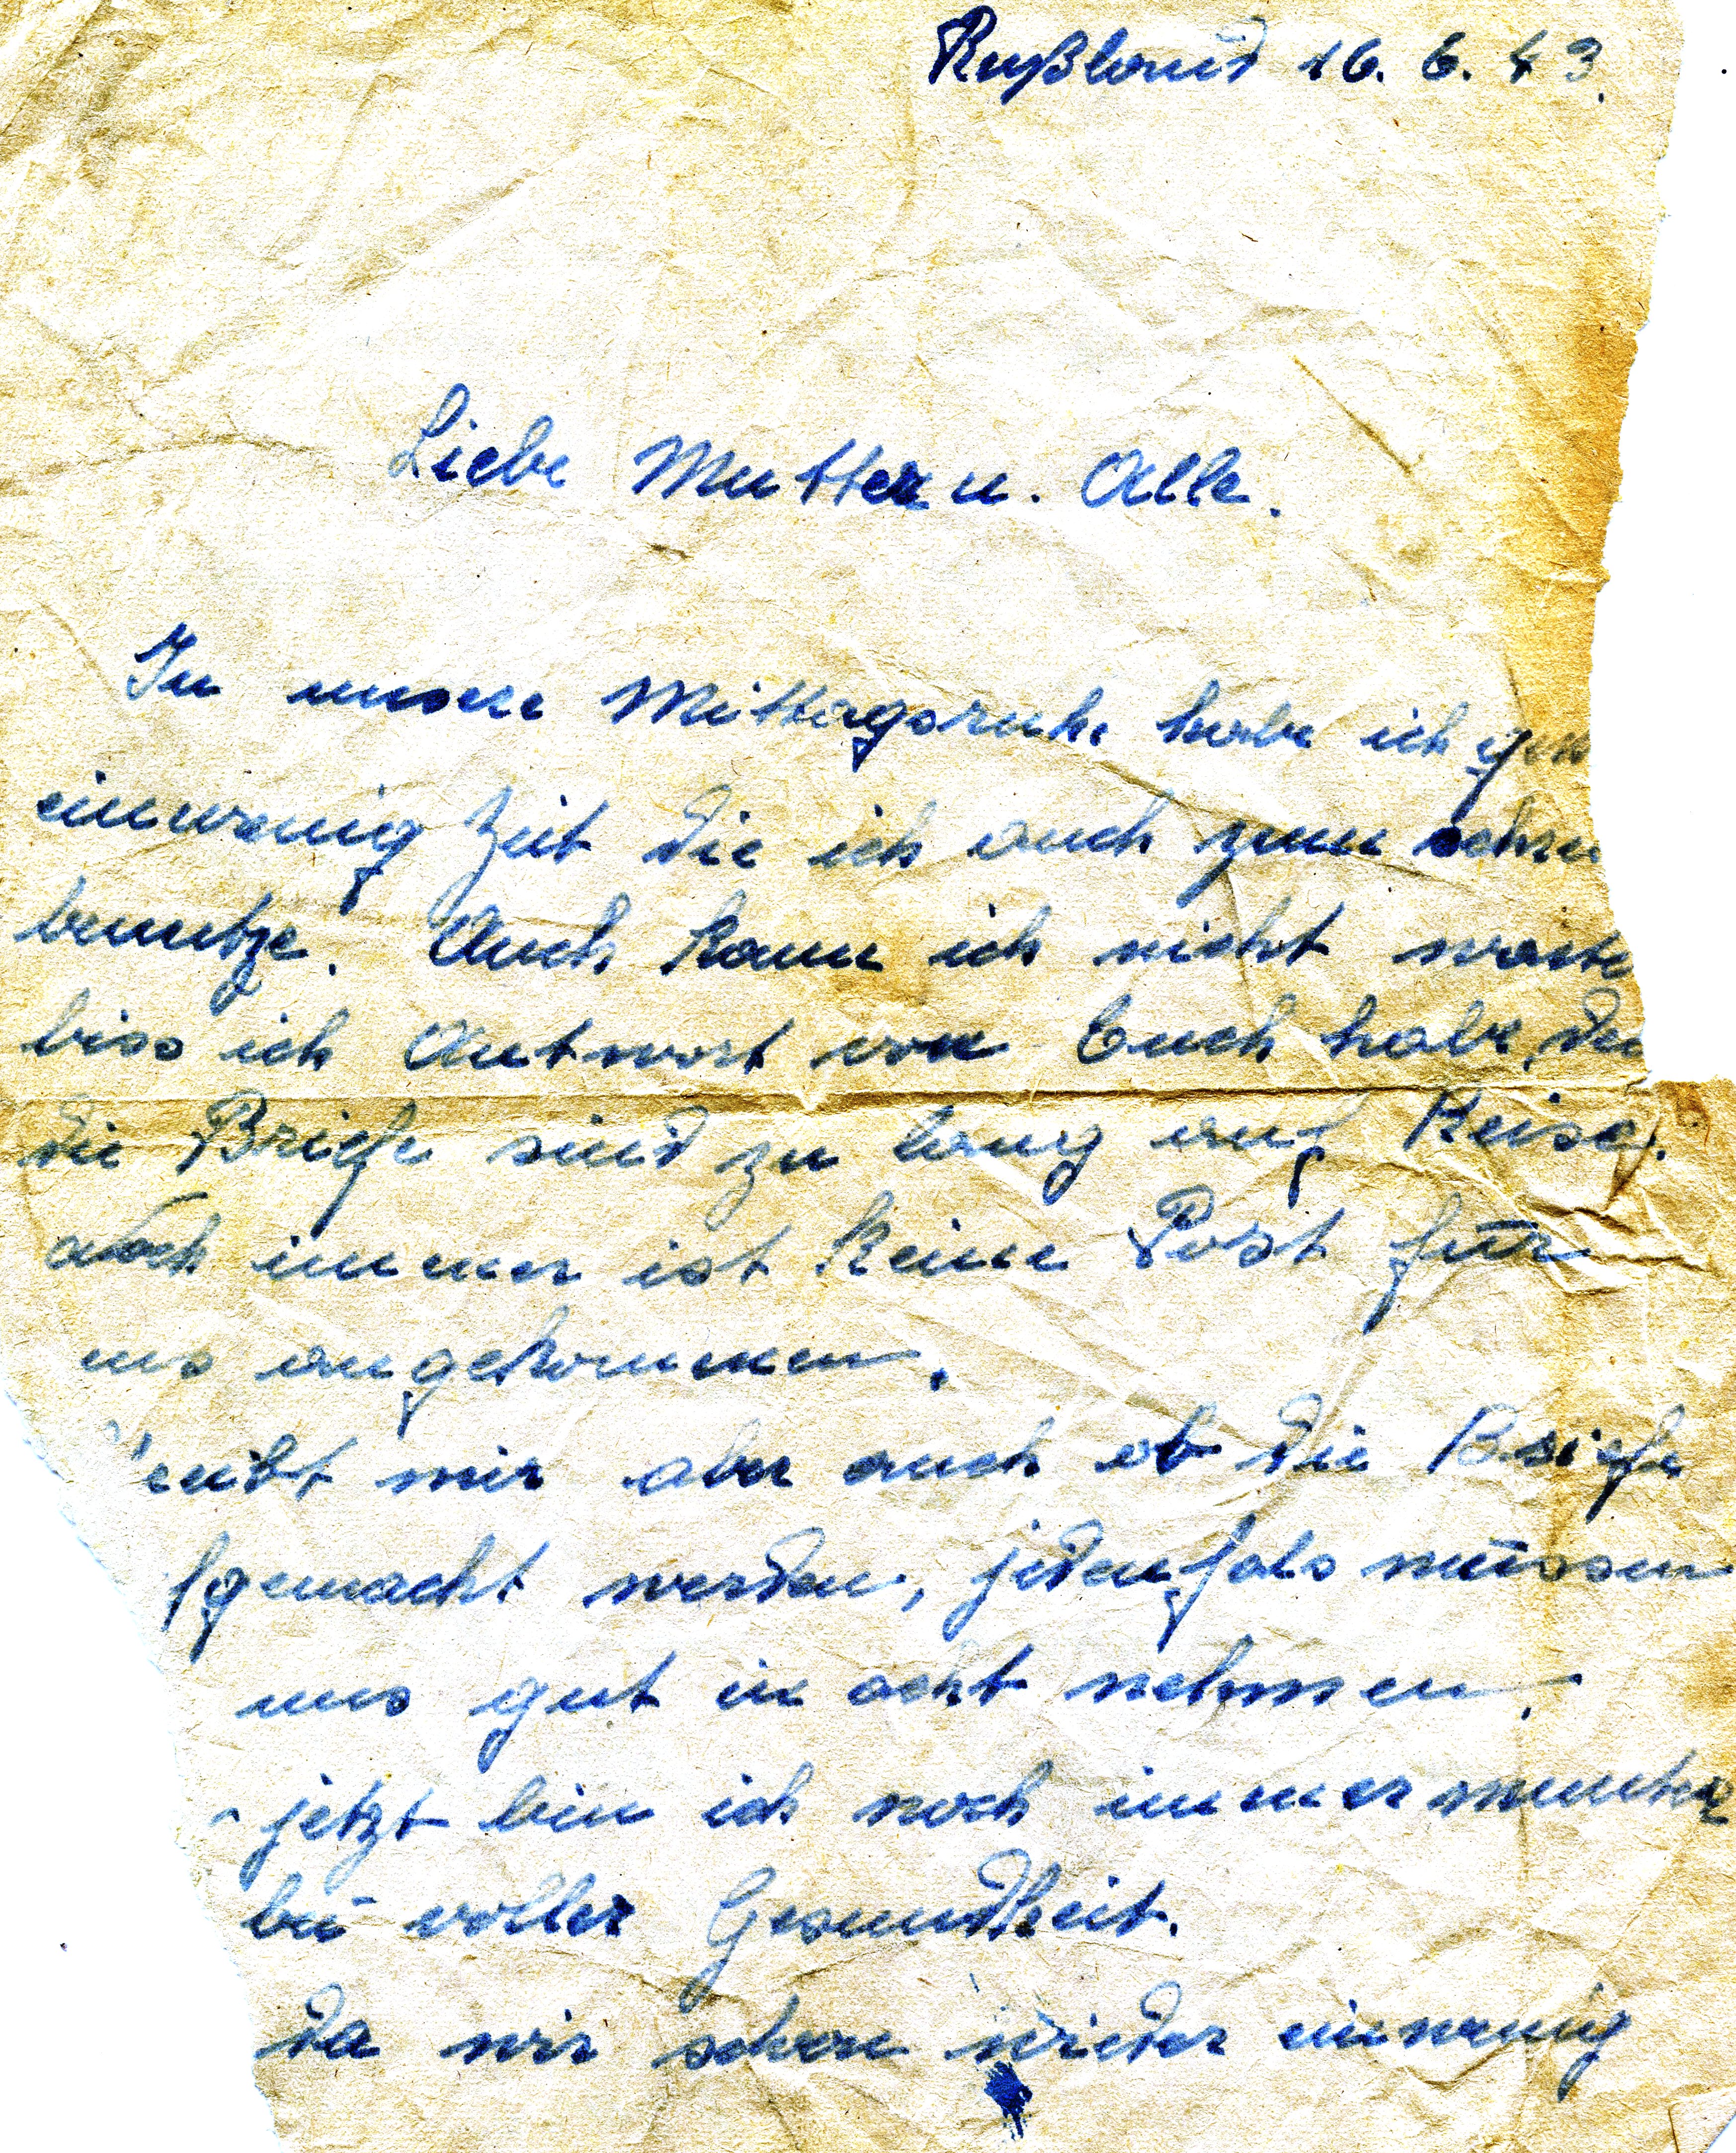 Rußland 16. 6. 43.
Liebe Mutter u. Alle.
In unsere Mittagsruhe habe ich
einwenig Zeit die ich auch zum
benutze. Auch kann ich nicht
biss ich Antwort von Euch habe,
die Briefe sind zu lang auf Reise.
immer ist keine Post für
uns angekommen.
mir aber auch ob die Briefe
fgemacht werden, jedenfals müssen
uns gut in acht nehmen.
jetzt bin ich noch immer munter
bei voller Gesundheit.
da wir schon wieder einwenig